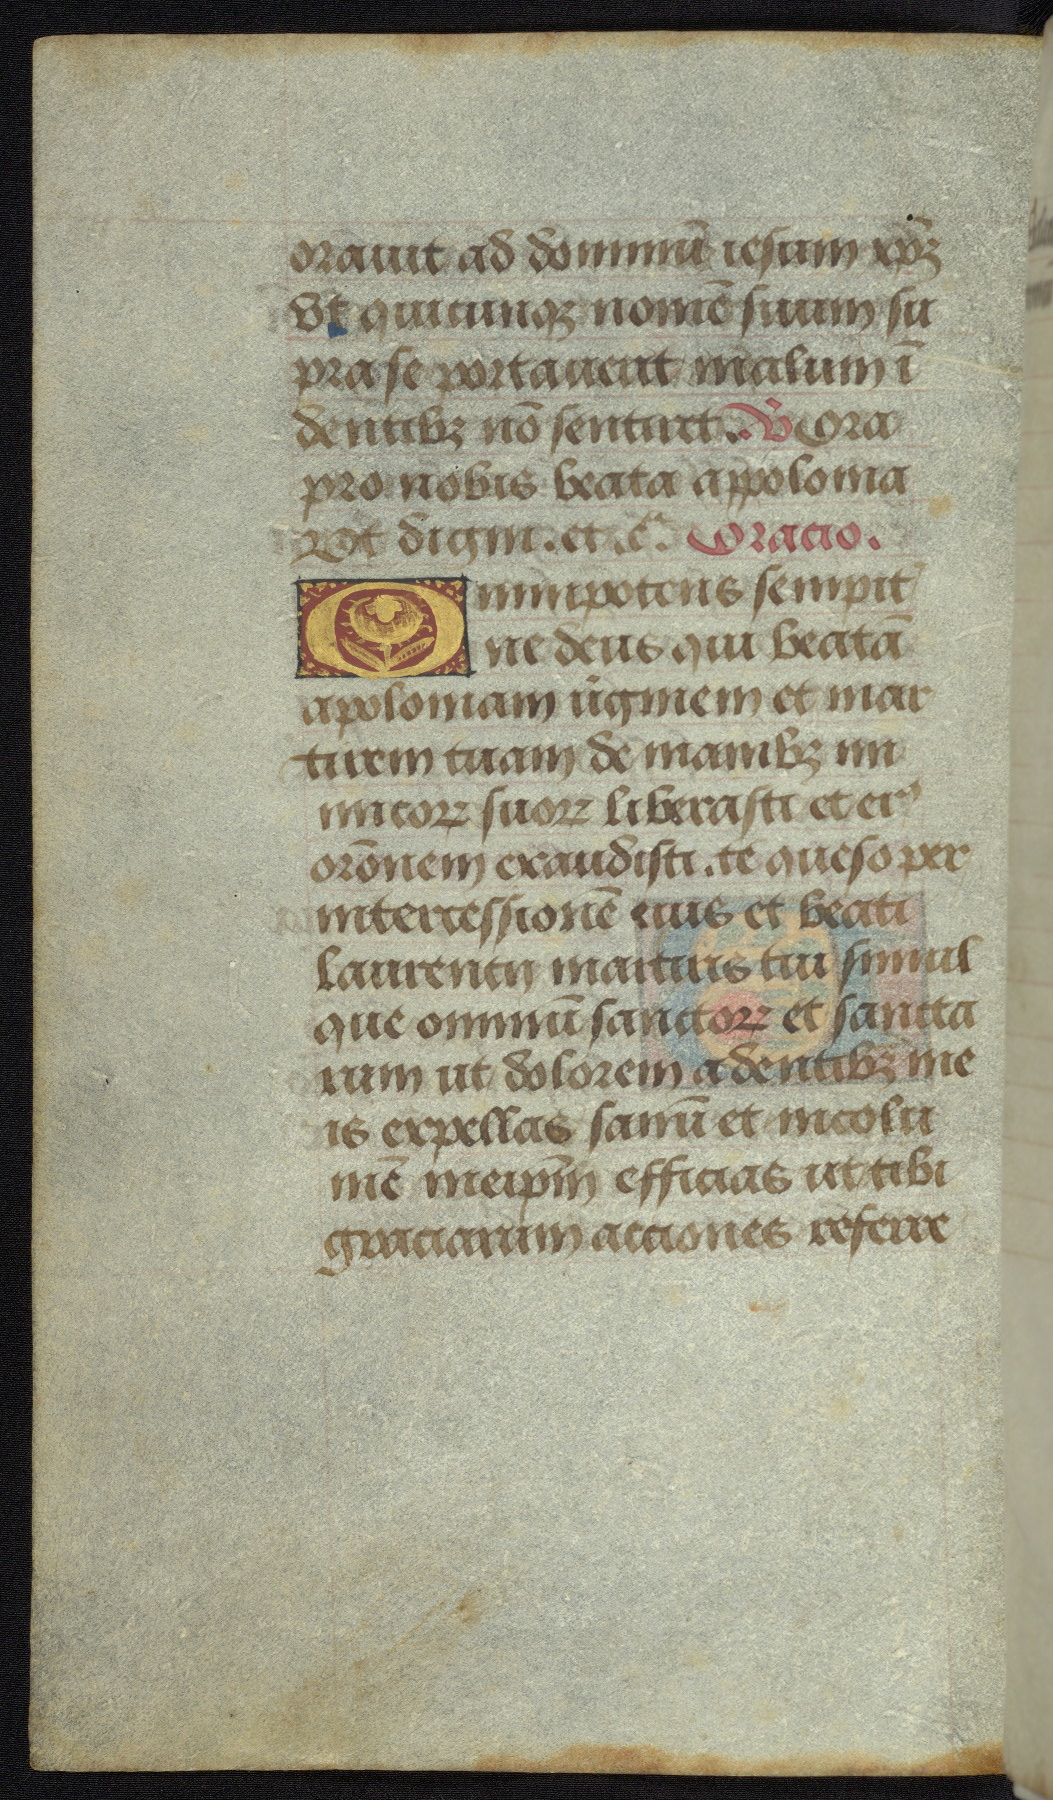 orauit ad dominū iesum xp̄ꝫ
vt quicunqꝫ nomē suum su
pra se portauerit malum ī
dentibꝫ nō sentiret. ℣ Ora
pro nobis beata appolonia
Vt digni. et cͣ. Oracio.
Omnipotens sempit᷑
ne deus qui beatā
apoloniam v̄ginem et mar
tirem tuam de manibꝫ ini
micoꝝ suoꝝ liberasti et eiꝰ
orōnem exaudisti. te queso per
intercessionē eius et beati
laurentij martiris tui simul
que omniū sanctoꝝ et sancta
rum ut dolorem a dentibꝫ me
is expellas sanū et incolu
mē meip̄m efficias ut tibi
graciarum acciones referre